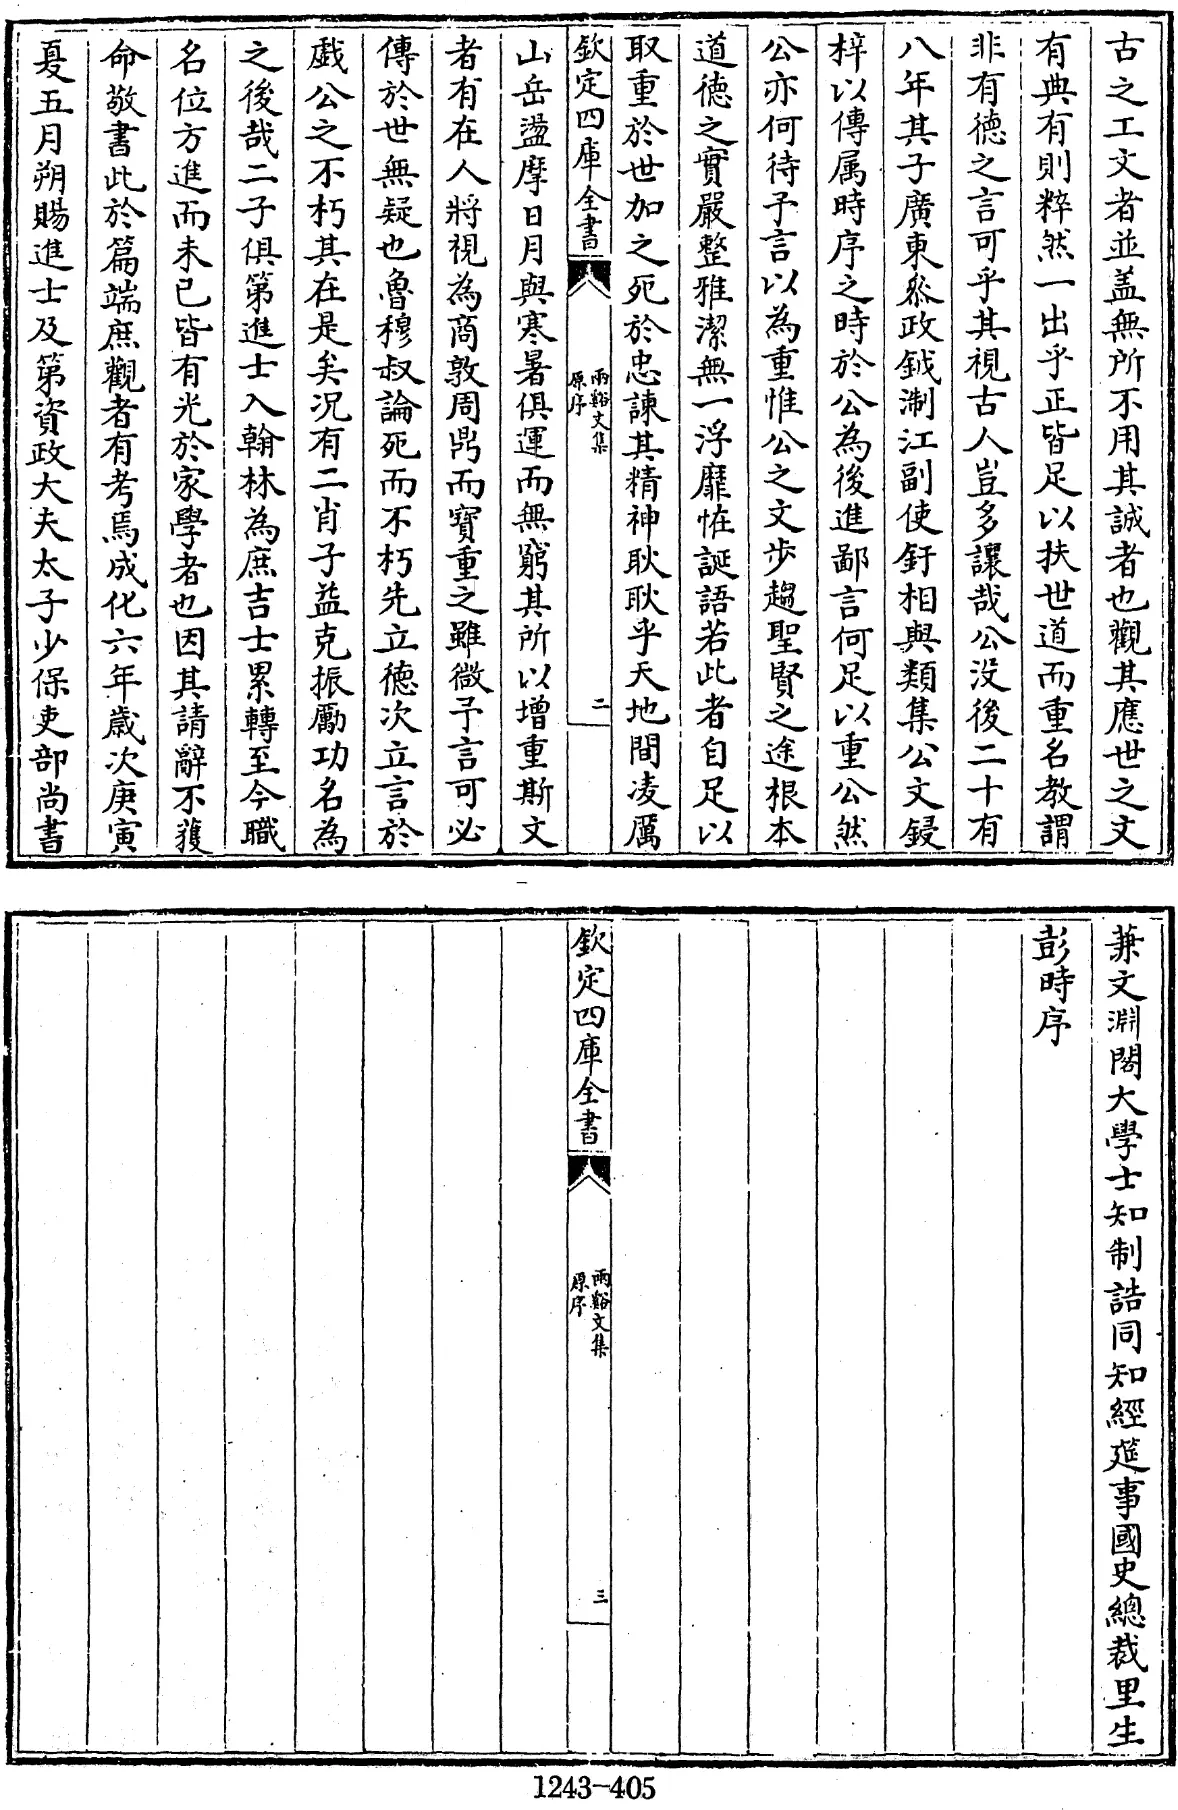 古之工文者並蓋無所不用其誠者也觀其應世之文
有典有則粹然一出乎正皆足以扶世道而重名教謂
非有德之言可乎其視古人豈多讓哉公没後二十有
八年其子廣東叅政鉞淛江副使釪相與類集公文鋟
梓以傳属時序之時於公為後進鄙言何足以重公然
公亦何待予言以為重惟公之文步趨聖賢之途根本
道德之實嚴整雅潔無一浮靡恠誕語若此者自足以
取重於世加之死於忠諫其精神耿耿乎天地間凌厲
欽定四庫全書
兩谿文集
原序
二
山岳盪摩日月與寒暑俱運而無窮其所以增重斯文
者有在人將視為商敦周鼎而寶重之雖微予言可必
傳於世無疑也魯穆叔論死而不朽先立德次立言於
戯公之不朽其在是矣况有二肖子益克振勵功名為
之後哉二子俱第進士入翰林為庶吉士累轉至今職
名位方進而未已皆有光於家學者也因其請辭不獲
命敬書此於篇端庶觀者有考焉成化六年歲次庚寅
夏五月朔賜進士及第資政大夫太子少保吏部尚書
兼文淵閣大學士知制誥同知經筵事國史總裁里生
彭時序
欽定四庫全書
兩谿文集
原序
三
1243-405